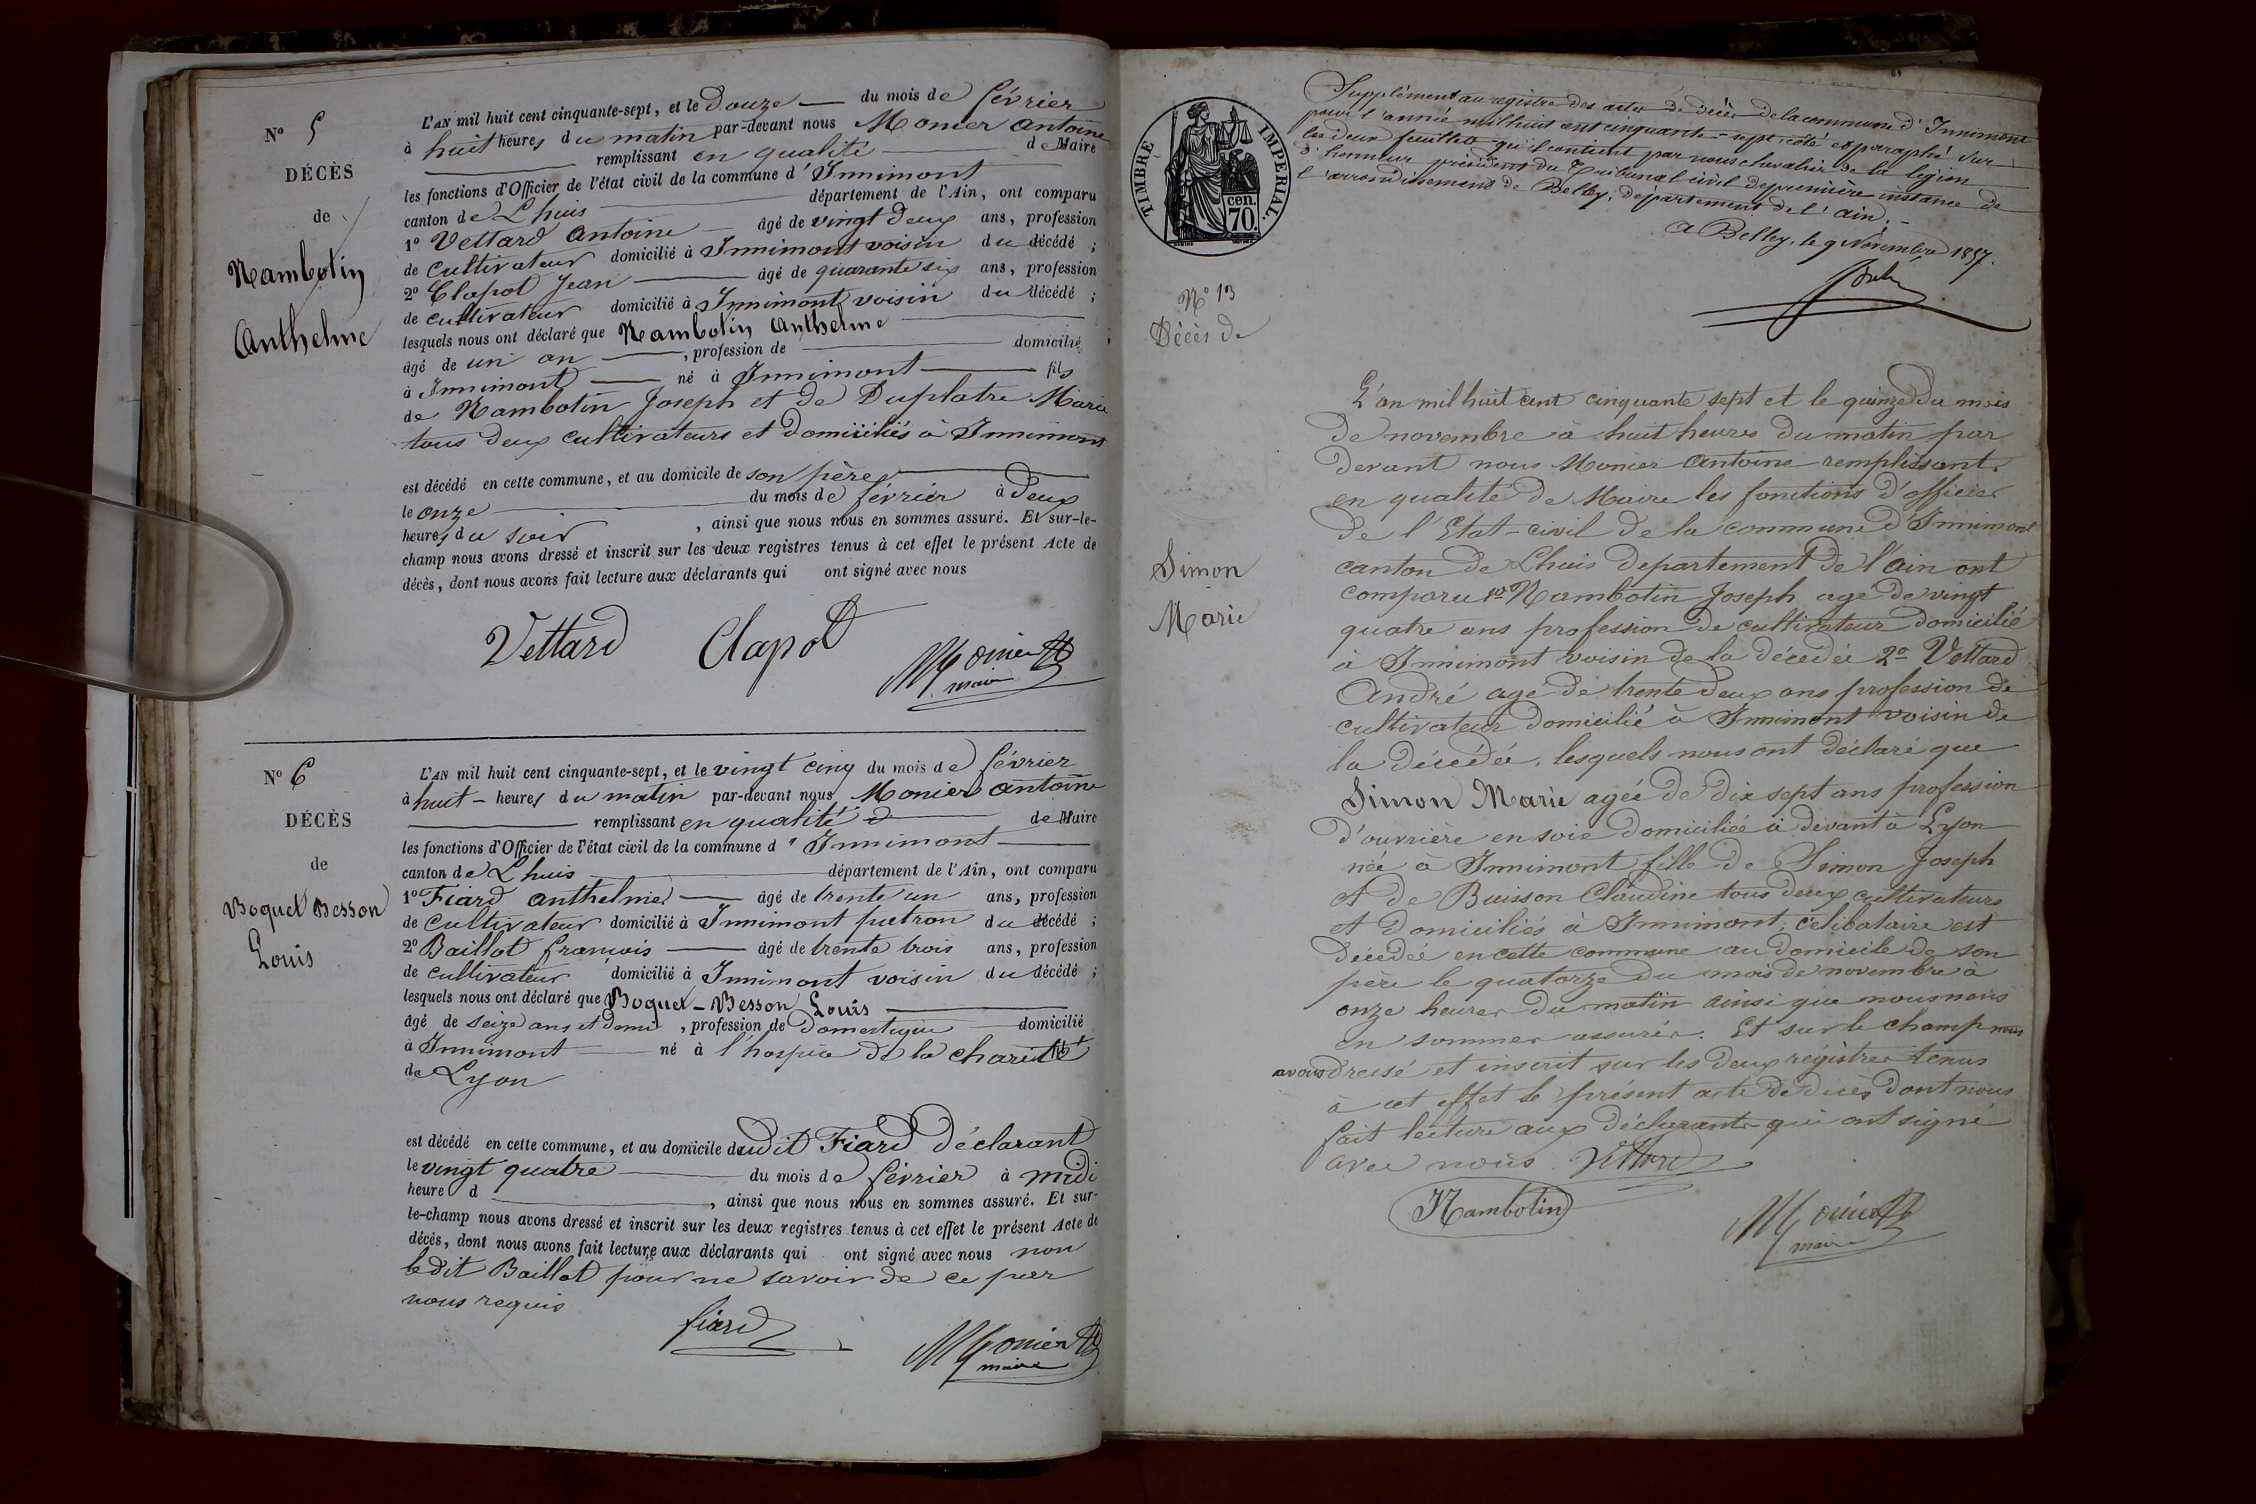 N° 5
DÉCÈS
de
Nambotin
Anthelme
L'AN mil huit cent cinquante-sept, et le Douze du mois de février
à huit heures du matin par-devant nous Monier Antoine
remplissant en qualité de Maire
les fonctions d'Officier de l'état civil de la commune d'Innimont
canton de Lhuis département de l'Ain, ont comparu
1° Vettard Antoine âgé de vingt deux ans, profession
de cultivateur domicilié à Innimont voisin du décédé ;
2° Clapot Jean âgé de quarante six ans, profession
de cultivateur domicilié à Innimont voisin du décédé ;
lesquels nous ont déclaré que Nambotin Anthelme
âgé de un an, profession de domicilié
à Innimont né à Innimont fils
de Nambotin Joseph et de Duplatre Marie
tous deux cultivateurs et domiciliés à Innimont
est décédé en cette commune, et au domicile de son père
le onze du mois de février à deux
heures du soir, ainsi que nous nous en sommes assuré. Et sur-le-
champ nous avons dressé et inscrit sur les deux registres tenus à cet effet le présent Acte de
décès, dont nous avons fait lecture aux déclarants qui ont signé avec nous
Vettard Clapot Monier
maire
N° 6
DÉCÈS
de
Boquet Besson
Louis
L'AN mil huit cent cinquante-sept, et le vingt cinq du mois de février
à huit heures du matin par-devant nous Monier Antoine
remplissant en qualité de Maire
les fonctions d'Officier de l'état civil de la commune d'Innimont
canton de Lhuis département de l'Ain, ont comparu
1° Fiard Anthelme âgé de trente un ans, profession
de cultivateur domicilié à Innimont patron du décédé ;
2° Baillot françois âgé de trente trois ans, profession
de cultivateur domicilié à Innimont voisin du décédé ;
lesquels nous ont déclaré que Boquet-Besson Louis
âgé de seize ans et demi, profession de Domestique domicilié
à Innimont né à l'hospice de la charité
de Lyon
est décédé en cette commune, et au domicile dudit Fiard Déclarant
le vingt quatre du mois de février à midi
heure d , ainsi que nous nous en sommes assuré. Et sur-
le-champ nous avons dressé et inscrit sur les deux registres tenus à cet effet le présent Acte de
décès, dont nous avons fait lecture aux déclarants qui ont signé avec nous non
ledit Baillot pour ne savoir de ce par
nous requis
fiard Monier
maire
TIMBRE IMPERIAL.
cen.
70.
Supplément au registre des actes de décès de la commune d'Innimont
pour l'année mil huit cent cinquante-sept coté et paraphé sur
les deux feuillets qu'il contient par nous chevalier de la légion
d'honneur président du Tribunal civil de première instance de
l'arrondissement de Belley, département de l'ain.
A Belley, le 9 Novembre 1857.
N° 13
Décès de
Simon
Marie
L'an mil huit cent cinquante sept et le quinze du mois
de novembre à huit heures du matin par
devant nous Monier Antoine remplissant
en qualité de Maire les fonctions d'officier
de l'Etat-civil de la commune d'Innimont
canton de Lhuis departement de l'ain ont
comparu 1° Nambotin Joseph age de vingt
quatre ans profession de cultivateur domicilié
à Innimont voisin de la décedée 2° Vettard
André agé de trente deux ans profession de
cultivateur domicilié à Innimont voisin de
la décédée, lesquels nous ont déclaré que
Simon Marie agée de dix sept ans profession
d'ouvrière en soie domiciliée ci devant à Lyon
née à Innimont fille de Simon Joseph
et de Buisson Claudine tous deux cultivateurs
et domiciliés à Innimont, célibataire est
décédée en cette commune au domicile de son
père le quatorze du mois de novembre à
onze heures du matin ainsi que nous nous
en sommes assurés. Et sur le champ nous
avons dressé et inscrit sur les deux registres tenus
à cet effet le présent acte de décès dont nous
fait lecture aux déclarants qui ont signé
avec nous Vettard
Nambotin Monier
maire